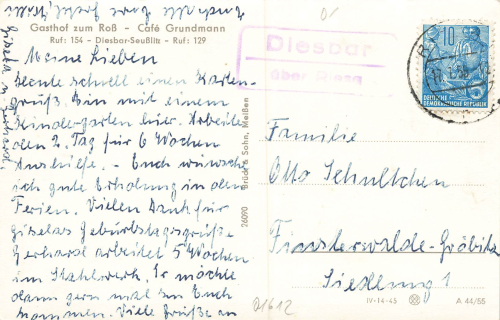 Gasthof zum Roß - Café Grundmann
Ruf: 154 - Diesbar-Seußlitz - Ruf: 129
Meine Lieben
Heute schnell einen Karten-
gruß. Bin mit einem
Kindergarten hier. Arbeite
den 2. Tag für 6 Wochen
Aushilfe. - Euch wünsche
ich gute Erholung in den
Ferien. Vielen Dank für
Giselas Geburtstagsgrüße
Gerhard arbeitet 5 Wochen
im Stahlwerk. Er möchte
dann gern mal zu Euch
kommen. Viele Grüße an
Gisela u. Gerhard.
26090 Brück & Sohn, Meißen
Diesbar
über Riesa
10
DEUTSCHE
DEMOKRATISCHE REPUBLIK
Familie
Otto Schultchen
Finsterwalde-Gröbitz
Siedlung 1
IV-14-45 A 44/55
Q1612